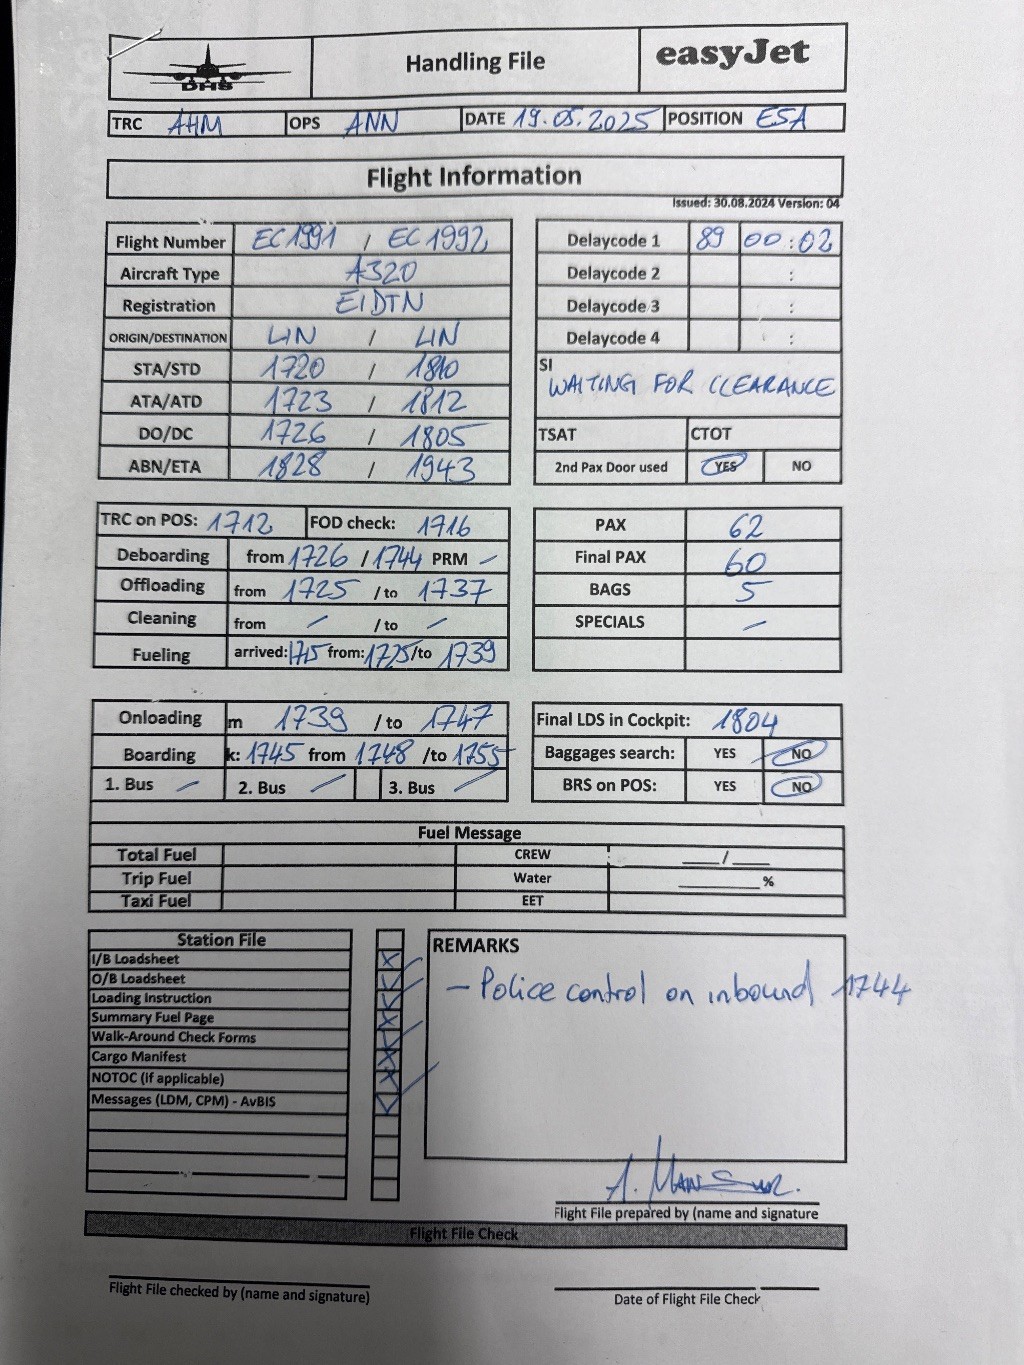 DHS Handling File easyJet
TRC AHM OPS ANN DATE 19.05.2025 POSITION ESA
Flight Information
Issued: 30.08.2024 Version: 04
Flight Number EC1991 / EC1992 Delaycode 1 89 00:02
Aircraft Type A320 Delaycode 2 :
Registration EIDTN Delaycode 3 :
ORIGIN/DESTINATION LIN / LIN Delaycode 4 :
STA/STD 1720 / 1810 SI
WAITING FOR CLEARANCE
ATA/ATD 1723 / 1812
DO/DC 1726 / 1805 TSAT CTOT
ABN/ETA 1828 / 1943 2nd Pax Door used YES NO
TRC on POS: 1712 FOD check: 1716 PAX 62
Deboarding from 1726 / 1744 PRM – Final PAX 60
Offloading from 1725 / to 1737 BAGS 5
Cleaning from – / to – SPECIALS –
Fueling arrived: 1715 from: 1725 /to 1739
Onloading m 1739 / to 1747 Final LDS in Cockpit: 1804
Boarding k: 1745 from 1748 /to 1755 Baggages search: YES NO
1. Bus – 2. Bus – 3. Bus – BRS on POS: YES NO
Fuel Message
Total Fuel CREW ___/___
Trip Fuel Water ______%
Taxi Fuel EET
Station File REMARKS
I/B Loadsheet
O/B Loadsheet
- Police control on inbound 1744
Loading Instruction
Summary Fuel Page
Walk-Around Check Forms
Cargo Manifest
NOTOC (if applicable)
Messages (LDM, CPM) - AvBIS
A. Mansur.
Flight File prepared by (name and signature
Flight File Check
Flight File checked by (name and signature)
Date of Flight File Check